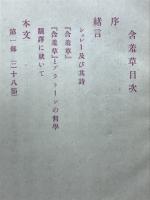 含羞草目次
序
緒言
シェレー及び其詩
『含羞草』
『含羞草』とプラトーンの哲學
翻譯に就いて
本文
第一篇(二十八節)